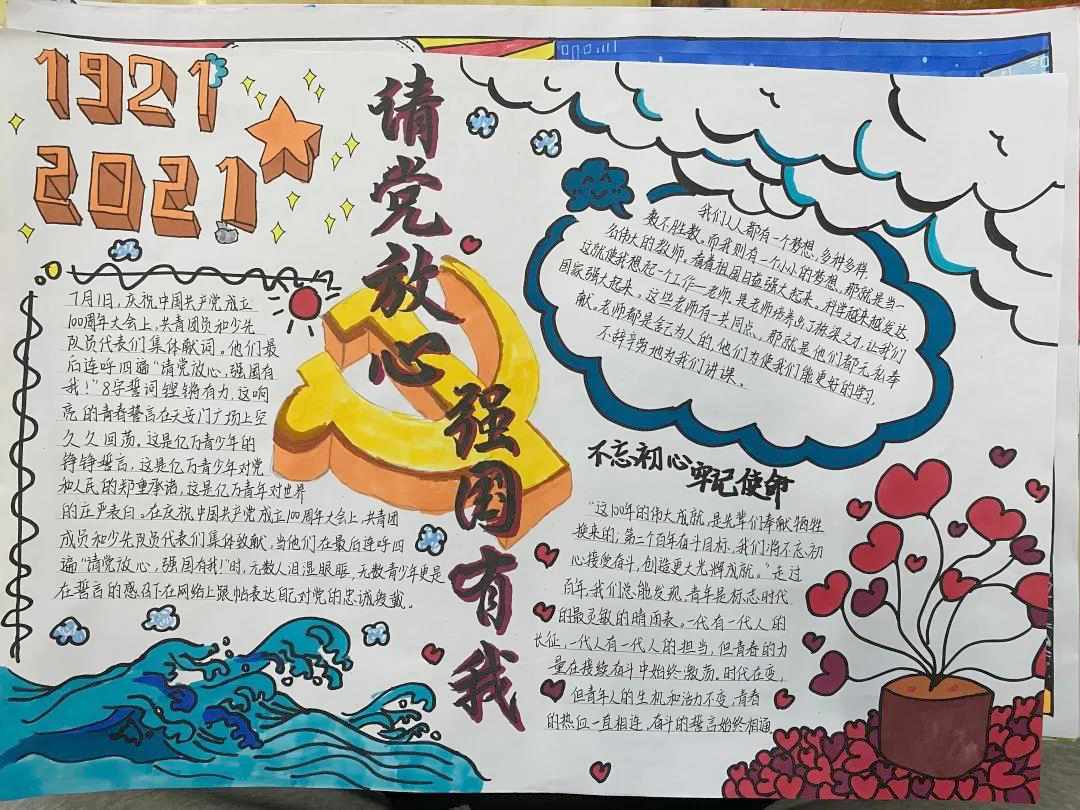 1921
2021
请党放心
强国有我
7月1日,庆祝中国共产党成立
100周年大会上,共青团员和少先
队员代表们集体献词。他们最
后连呼四遍“请党放心,强国有
我!”8字誓词铿锵有力,这响
亮的青春誓言在天安门广场上空
久久回荡。这是亿万青少年的
铮铮誓言,这是亿万青少年对党
和人民的郑重承诺,这是亿万青年对世界
的庄严表白。在庆祝中国共产党成立100周年大会上,共青团
成员和少先队员代表们集体致献,当他们在最后连呼四
遍“请党放心,强国有我!”时,无数人泪湿眼眶,无数青少年更是
在誓言的感召下在网络上跟帖表达自己对党的忠诚爱戴。
我们人人都有一个梦想,多种多样,
数不胜数。而我则有一个小小的梦想,那就是当一
名伟大的教师。看着祖国日益强大起来。科学越来越发达,
这就使我想起一个工作—老师,是老师培养出了栋梁之才,让我们
国家强大起来。这些老师有一共同点,那就是他们都无私奉
献。老师都是舍己为人的,他们为使我们能更好的学习,
不辞辛劳地为我们讲课。
不忘初心 牢记使命
“这100年的伟大成就,是先辈们奉献牺牲
换来的;第二个百年奋斗目标,我们将不忘初
心接受奋斗,创造更大光辉成就。”走过
百年,我们总能发现,青年是标志时代
的最灵敏的晴雨表。一代有一代人的
长征,一代人有一代人的担当,但青春的力
量在接续奋斗中始终激荡,时代在变,
但青年人的生机和活力不变,青春
的热血一直相连,奋斗的誓言始终相通